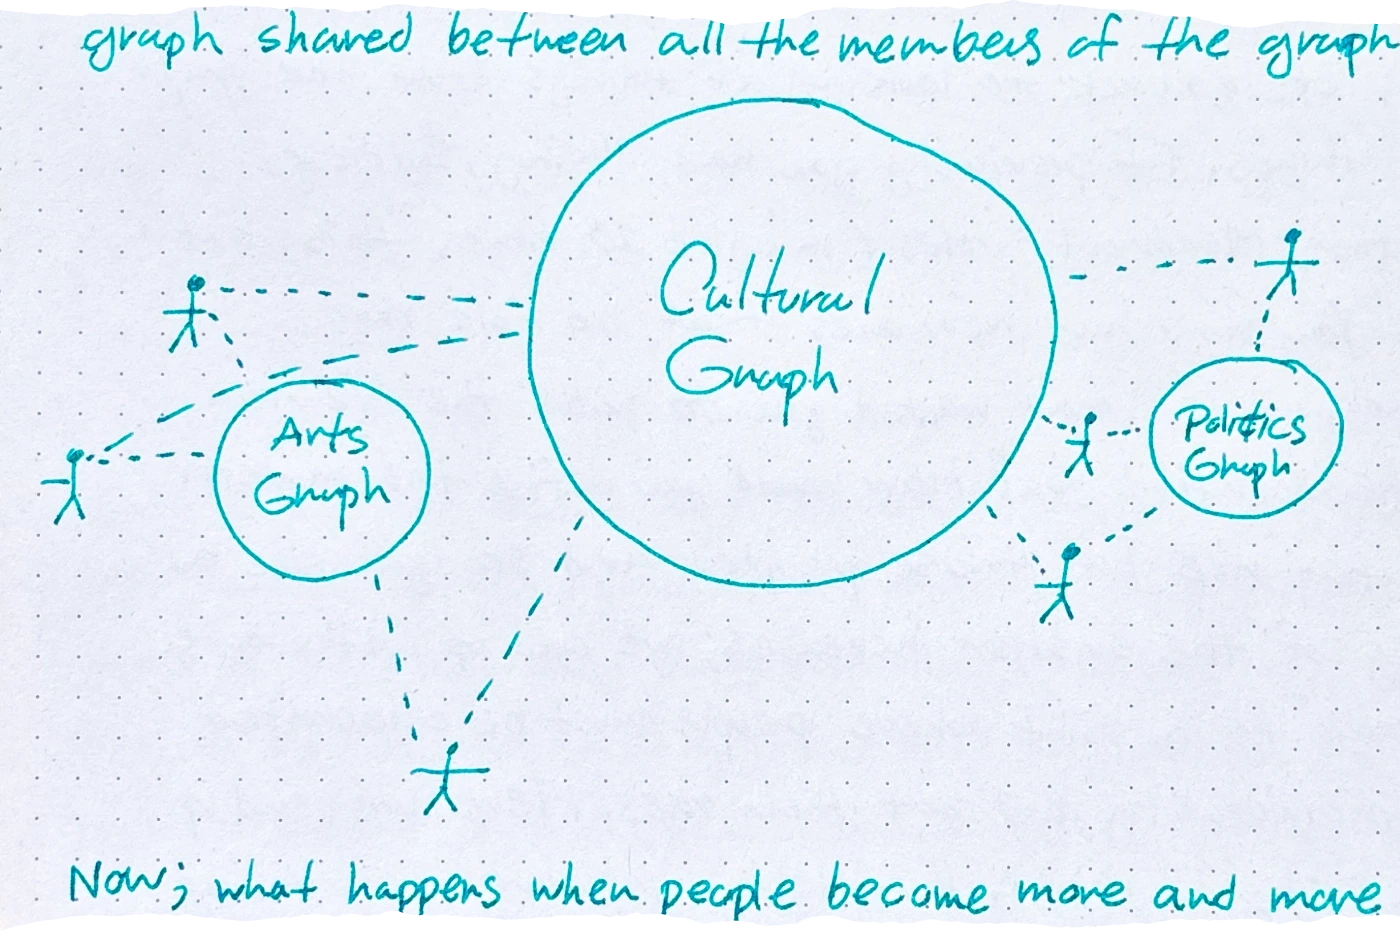 graph shared between all the members of the graph
Cultural
Graph
Arts
Graph
Politics
Graph
Now; what happens when people become more and more